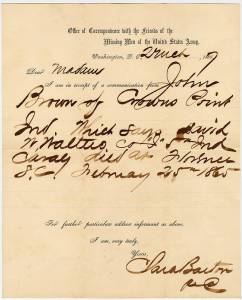 Office of Correspondence with the Friends of the
Missing Men of the United States Army,
Washington, D. C. 2 Mch 186
Dear Madam
I am in receipt of a communication from John
Brown of Crown Point
Ind. Which says David
W. Walters, Co I 5th Ind
Cavaly died at Florence
S.C. February 25th 1865
For further particulars address informant as above.
I am, very truly,
Yours,
Clara Barton